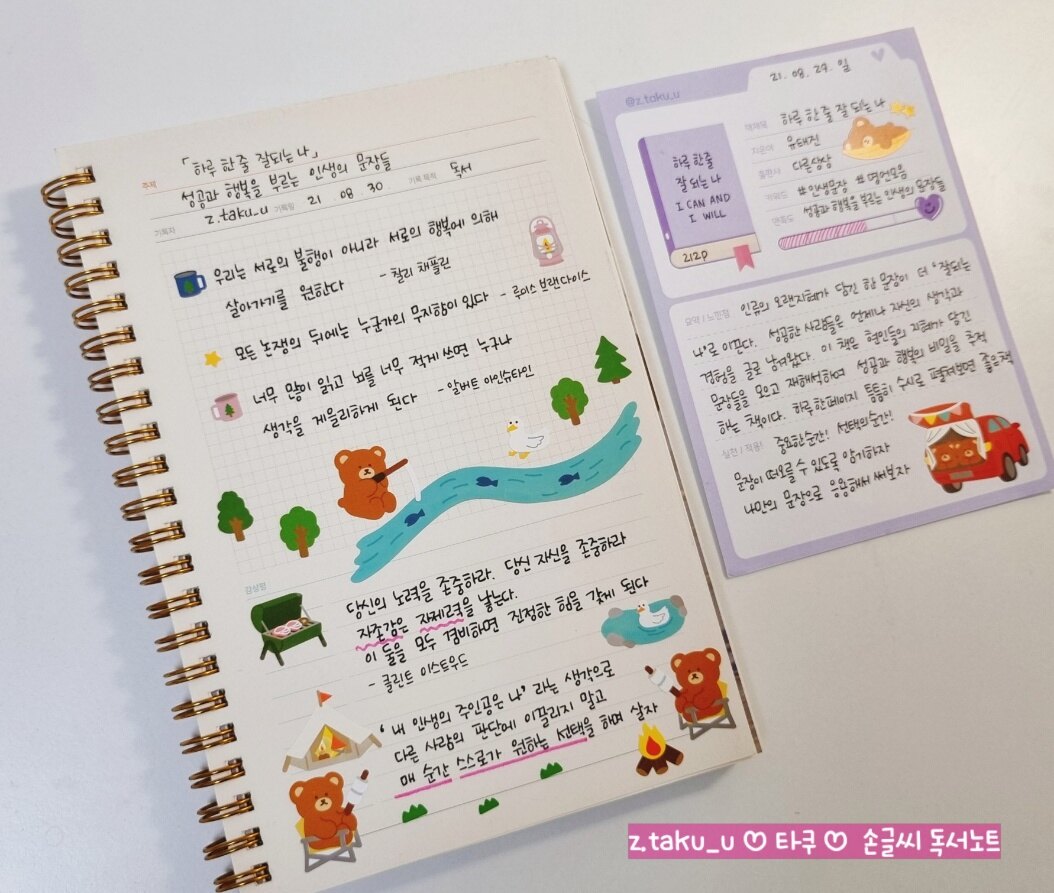 「하루 한줄 잘되는 나」
주제 성공과 행복을 부르는 인생의 문장들
기록자 z.taku_u 기록일 21 08 30 기록 목적 독서
우리는 서로의 불행이 아니라 서로의 행복에 의해
살아가기를 원한다 - 찰리 채플린
모든 논쟁의 뒤에는 누군가의 무지함이 있다 - 루이스 브랜다이스
너무 많이 읽고 뇌를 너무 적게 쓰면 누구나
생각을 게을리하게 된다 - 알버트 아인슈타인
감상평
당신의 노력을 존중하라. 당신 자신을 존중하라
자존감은 자제력을 낳는다.
이 둘을 모두 겸비하면 진정한 힘을 갖게 된다
- 클린트 이스트우드
' 내 인생의 주인공은 나' 라는 생각으로
다른 사람의 판단에 이끌리지 말고
매 순간 스스로가 원하는 선택을 하며 살자
@z.taku_u
21. 08. 29. 일
하루 한줄
잘 되는 나
I CAN AND
I WILL
212p
책제목 하루 한 줄 잘 되는 나
지은이 유태진
출판사 다른상상
키워드 #인생문장 #명언모음
성공과 행복을 부르는 인생의 문장들
만족도
요약 / 느낀점 인류의 오랜지혜가 담긴 한 문장이 더 '잘되는
나'로 이끈다. 성공한 사람들은 언제나 자신의 생각과
경험을 글로 남겨왔다. 이 책은 현인들의 지혜가 담긴
문장들을 모으고 재해석하며 성공과 행복의 비밀을 추적
하는 책이다. 하루한페이지 틈틈히 수시로 펼쳐보면 좋은책
실천 / 적용! 중요한순간! 선택의순간!
문장이 떠오를 수 있도록 암기하자
나만의 문장으로 응용해서 써보자
z.taku_u ♡ 타쿠 ♡ 손글씨 독서노트